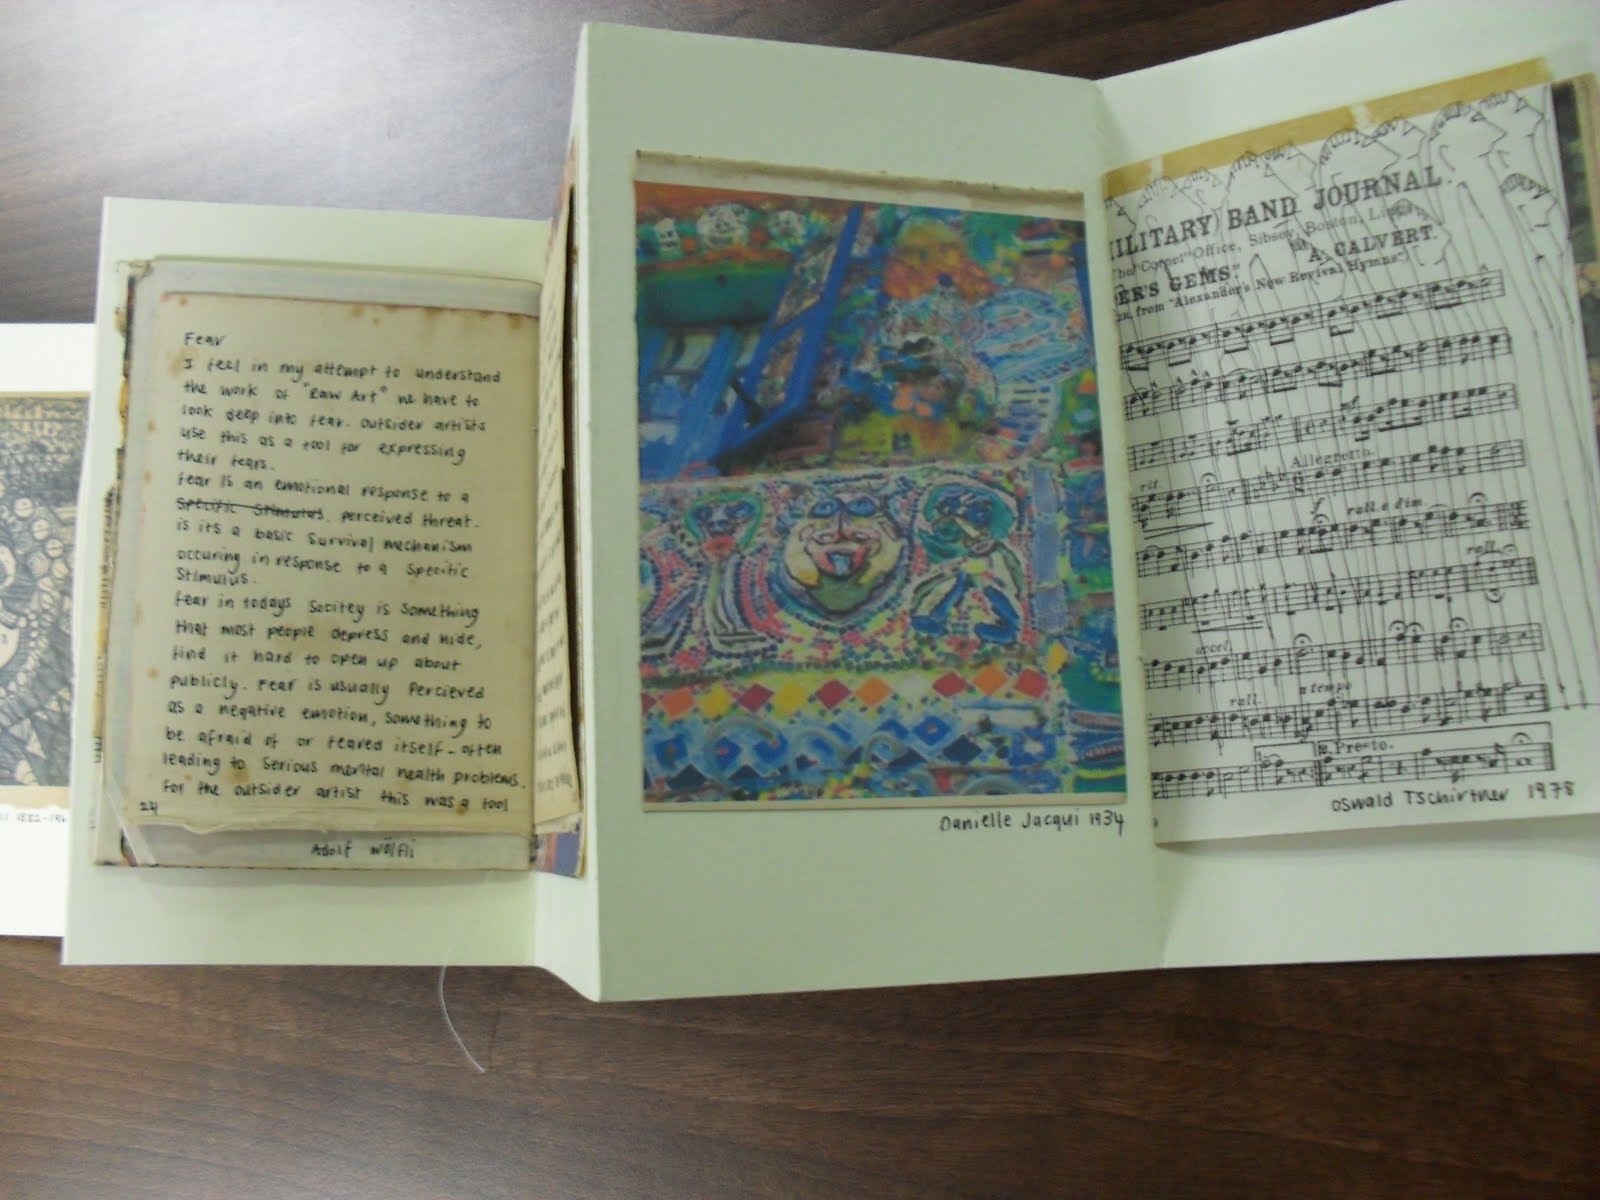 Fear
I feel in my attempt to understand
the work of "Raw Art" we have to
look deep into fear. outsider artists
use this as a tool for expressing
their fears.
Fear is an emotional response to a
Specific Stimulus. perceived threat.
is its a basic survival mechanism
occuring in response to a specific
Stimulus.
Fear in todays Socitey is something
that most people depress and hide,
find it hard to open up about
publicly. Fear is usually Percieved
as a negative emotion, something to
be afraid of or feared itself - often
leading to serious mental health problems.
For the outsider artist this was a tool
24
Adolf Wölfli
Danielle Jacqui 1934
MILITARY BAND JOURNAL
The "Cornet" Office, Sibsey, Boston,
A. CALVERT.
GEMS"
from "Alexander's New Revival Hymns"
Allegretto.
rit.
f
roll. e dim.
rall.
accel.
rall.
a tempo
Presto.
Oswald Tschirtner 1978